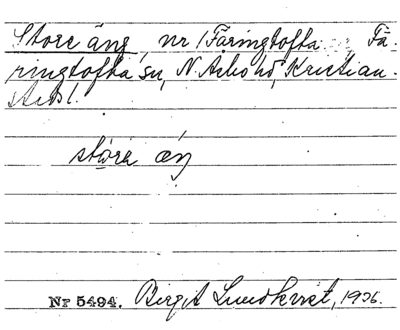 Store äng, nr 1 Färingtofta Fä-
ringtofta sn, N. Åsbo hd, Kristian-
stads l.
stóra æŋ
Nr 5494. Birgit Lundkvist, 1936.